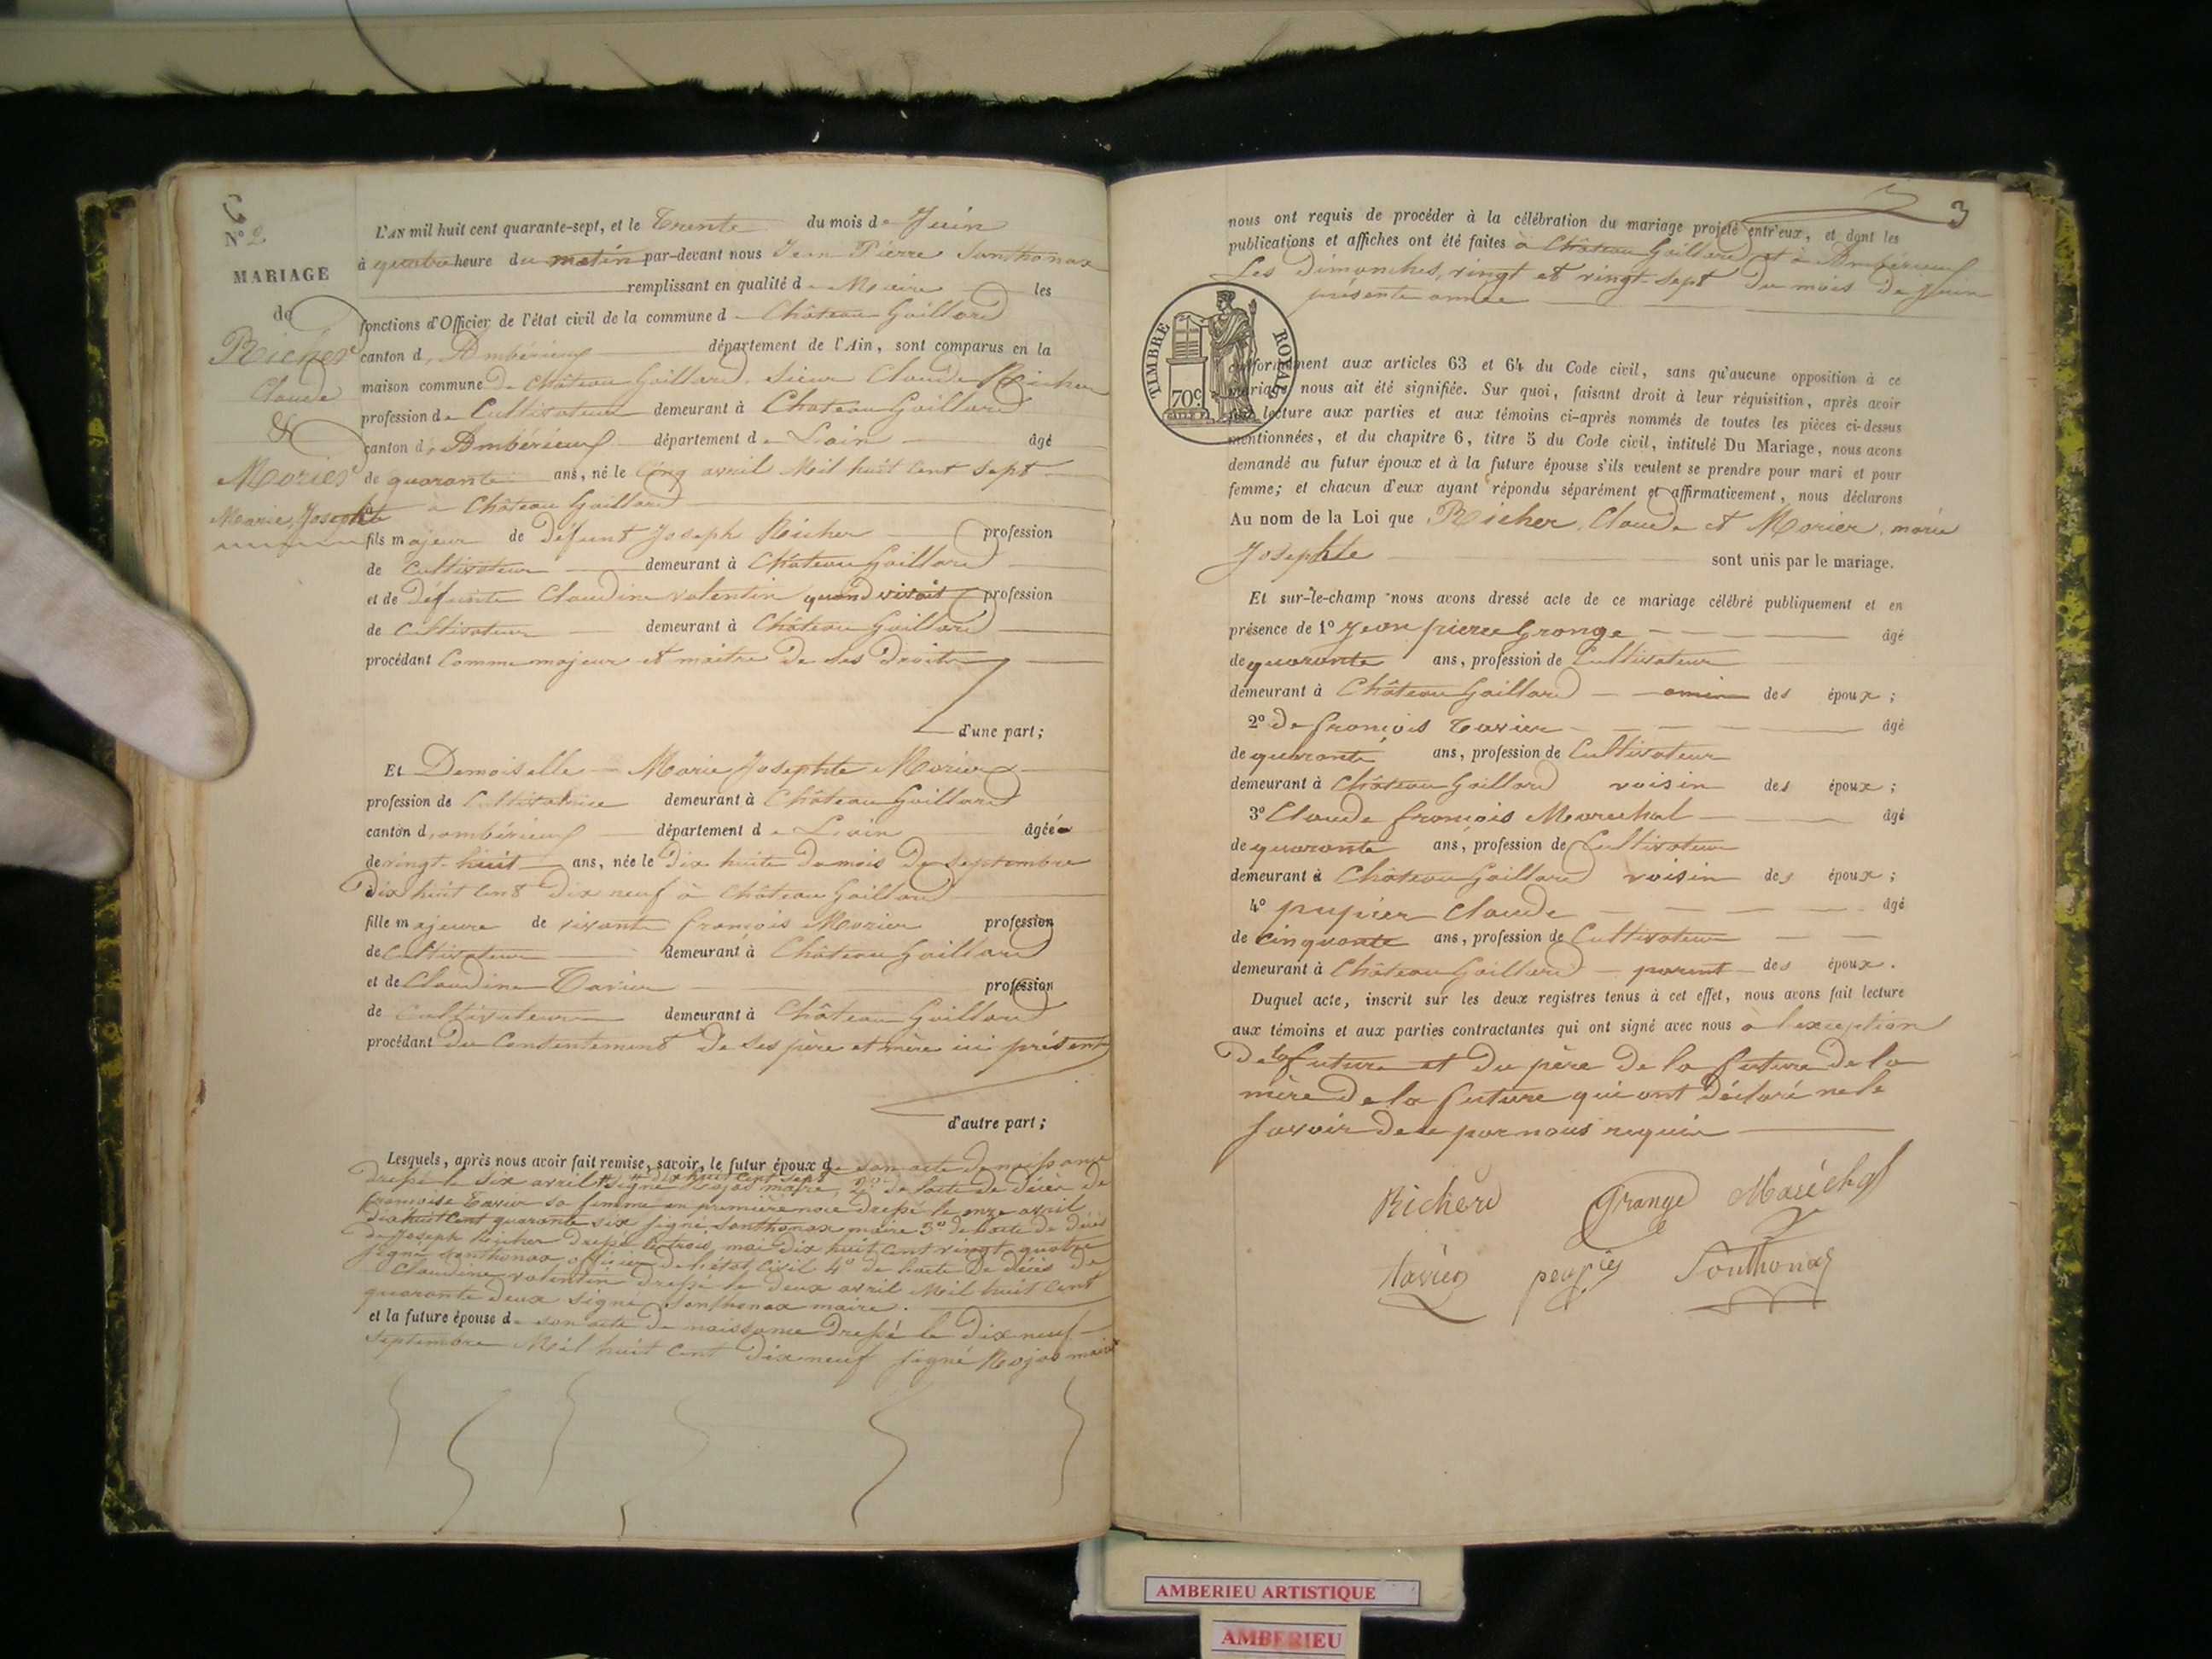 N° 2
MARIAGE
de
Richer
Claude
&
Morier
Marie Josephte
L'AN mil huit cent quarante-sept, et le Trente du mois de Juin
à quatre heure du matin par-devant nous Jean Pierre Santhonax
remplissant en qualité de Maire les
fonctions d'Officier de l'état civil de la commune de Château Gaillard
canton d'Ambérieux département de l'Ain, sont comparus en la
maison commune de Château Gaillard. Sieur Claude Richer
profession de Cultivateur demeurant à Château Gaillard
canton d'Ambérieux département de Lain âgé
de quarante ans, né le Cinq avril Mil huit Cent Sept
à Château Gaillard
fils majeur de défunt Joseph Richer profession
de Cultivateur demeurant à Château Gaillard
et de Défunte Claudine valentin quand vivait profession
de Cultivateur demeurant à Château Gaillard
procédant Comme majeur et maitre de ses Droits
d'une part;
Et Demoiselle Marie Josephte Morier
profession de Cultivatrice demeurant à Château Gaillard
canton d'ambérieux département de Lain âgée
de vingt-huit ans, née le Dix huite du mois De Septembre
dix huit Cent Dix neuf à Château Gaillard
fille majeure de vivant françois Morier profession
de Cultivateur demeurant à Château Gaillard
et de Claudine Tavier profession
de Cultivateur demeurant à Château Gaillard
procédant du Consentement De Ses père et mère ici présent
d'autre part;
Lesquels, après nous avoir fait remise, savoir, le futur époux de son acte de naissance
dressé le six avril dix huit Cent Sept signé Rojas maire, 2° de lacte de décès de
françoise Tavier sa femme en première noce dressé le onze avril
Dix huit Cent quarante six signé Santhonax maire 3° de lacte de décès
de Joseph Richer dressé le trois mai Dix huit Cent vingt quatre
signé Santhonax officier de l'état Civil 4° de lacte de décès de
Claudine valentin dressé le deux avril Mil huit Cent
quarante deux signé Santhonax maire.
et la future épouse de son acte de naissance Dressé le Dix neuf
Septembre Mil huit Cent Dix neuf signé Rojas maire
3
nous ont requis de procéder à la célébration du mariage projeté entr'eux, et dont les
publications et affiches ont été faites à Château Gaillard et à Ambérieux
Les Dimanches, vingt et vingt-sept Du mois De Juin
présente année
TIMBRE ROYAL
70c.
conformément aux articles 63 et 64 du Code civil, sans qu'aucune opposition à ce
mariage nous ait été signifiée. Sur quoi, faisant droit à leur réquisition, après avoir
fait lecture aux parties et aux témoins ci-après nommés de toutes les pièces ci-dessus
mentionnées, et du chapitre 6, titre 5 du Code civil, intitulé Du Mariage, nous avons
demandé au futur époux et à la future épouse s'ils veulent se prendre pour mari et pour
femme; et chacun d'eux ayant répondu séparément et affirmativement, nous déclarons
Au nom de la Loi que Richer, Claude et Morier, marie
Josephte sont unis par le mariage.
Et sur-le-champ nous avons dressé acte de ce mariage célébré publiquement et en
présence de 1° Jean pierre Grange âgé
de quarante ans, profession de Cultivateur
demeurant à Château Gaillard amis des époux;
2° De françois Tavier âgé
de quarante ans, profession de Cultivateur
demeurant à Château Gaillard voisin des époux;
3° Claude françois Marechal âgé
de quarante ans, profession de Cultivateur
demeurant à Château Gaillard voisin des époux;
4° pupier Claude âgé
de Cinquante ans, profession de Cultivateur
demeurant à Château Gaillard parent des époux.
Duquel acte, inscrit sur les deux registres tenus à cet effet, nous avons fait lecture
aux témoins et aux parties contractantes qui ont signé avec nous à l'exception
De la future et Du père De la future De la
mère De la future qui ont Déclaré ne le
savoir De ce par nous requis
Richerd Grange Maréchal
tavier Santhonax
AMBERIEU ARTISTIQUE
AMBERIEU